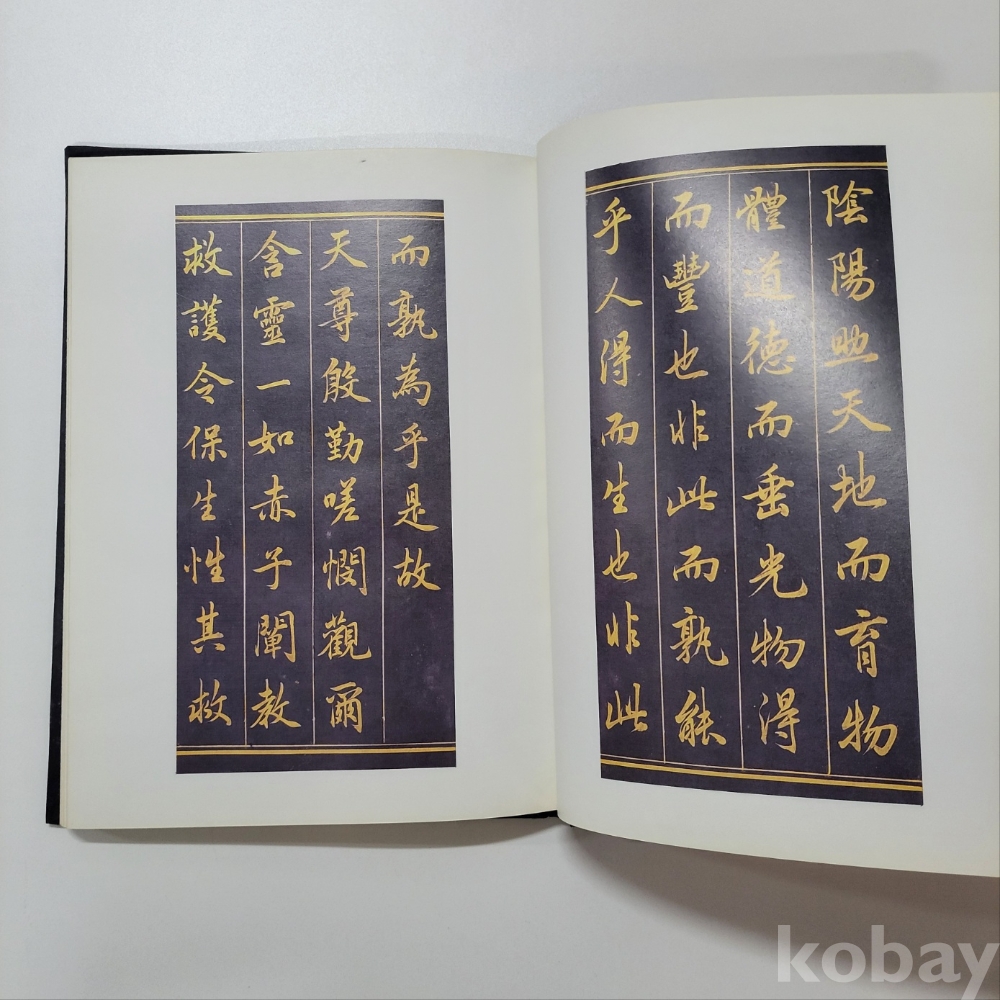 陰陽助天地而育物
體道德而垂光物得
而豐也非此而孰能
乎人得而生也非此
而孰為乎是故
天尊殷勤嗟憫觀爾
含靈一如赤子闡教
救護令保生性其救
kobay